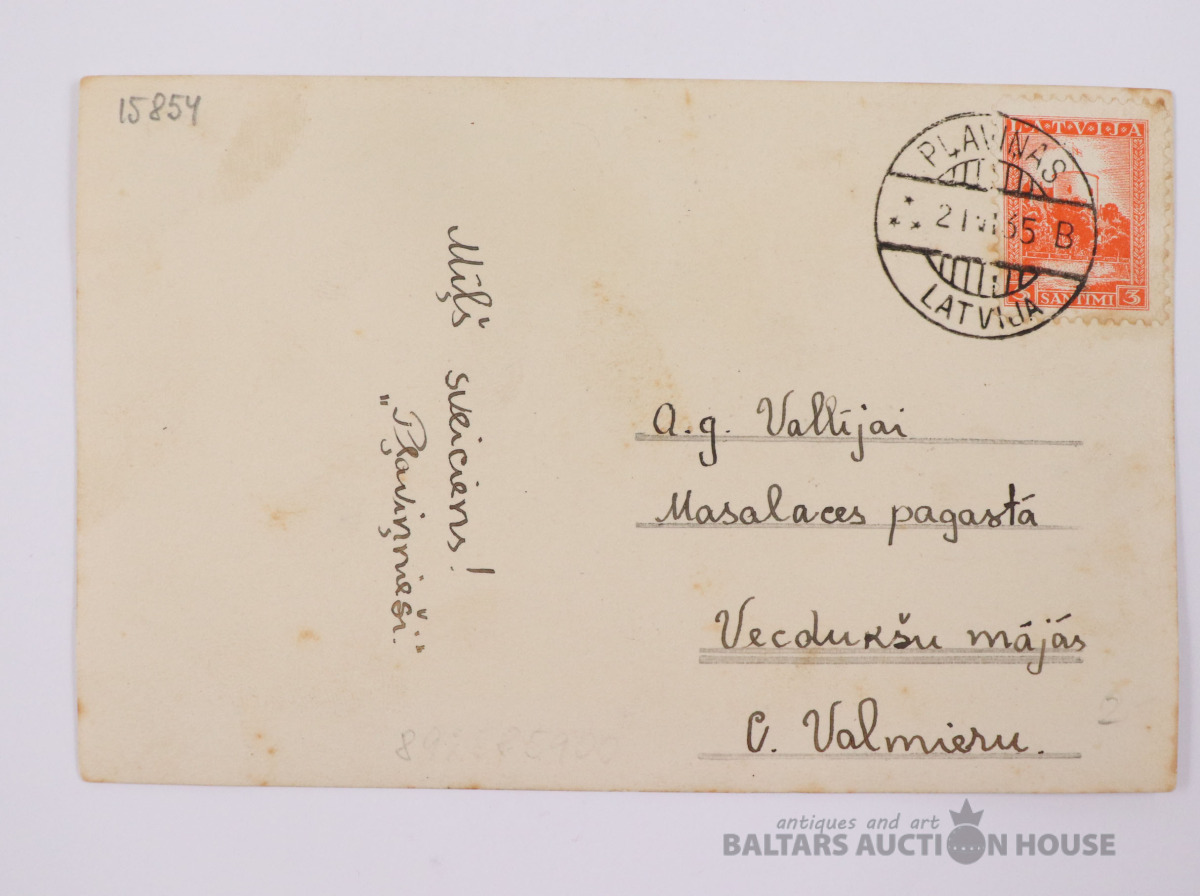 15854
PĻAVIŅAS
21 VI 35 B
LATVIJA
LATVIJA
3 SANTIMI 3
Mīļš sveiciens!
„Pļaviņnieši."
A.g. Vallījai
Masalaces pagastā
Vecdukšu mājās
C. Valmieru.
2
antiques and art
BALTARS AUCTION HOUSE